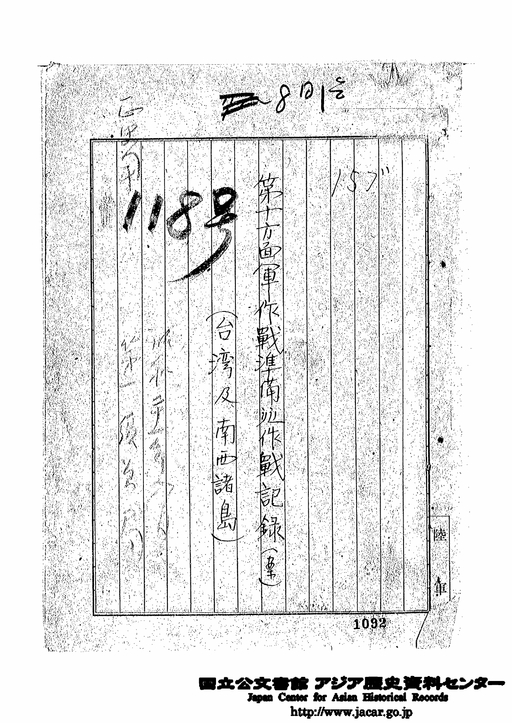 8月1日
157
第十方面軍作戦準備並作戦記録(案)
(台湾及南西諸島)
118号
第一復員局
陸軍
1092
国立公文書館 アジア歴史資料センター
Japan Center for Asian Historical Records
http://www.jacar.go.jp